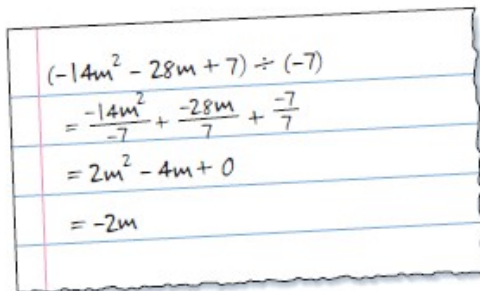 (-14m² - 28m + 7) ÷ (-7)
= -14m²/-7 + -28m/7 + -7/7
= 2m² - 4m + 0
= -2m